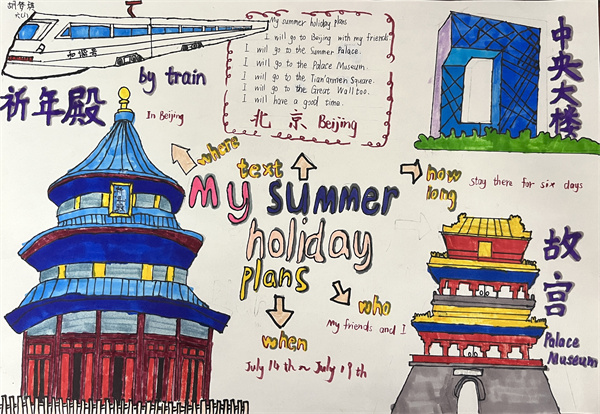 My summer holiday plans
I will go to Beijing with my friends.
I will go to the Summer Palace.
I will go to the Palace Museum.
I will go to the Tian'anmen Square.
I will go to the Great Wall too.
I will have a good time.
北京 Beijing
和谐号
by train
祈年殿
In Beijing
中央大楼
where
text
how long
Stay there for six days
My summer
holiday
plans
who
My friends and I
when
July 14th~July 19th
故宫
Palace
Museum